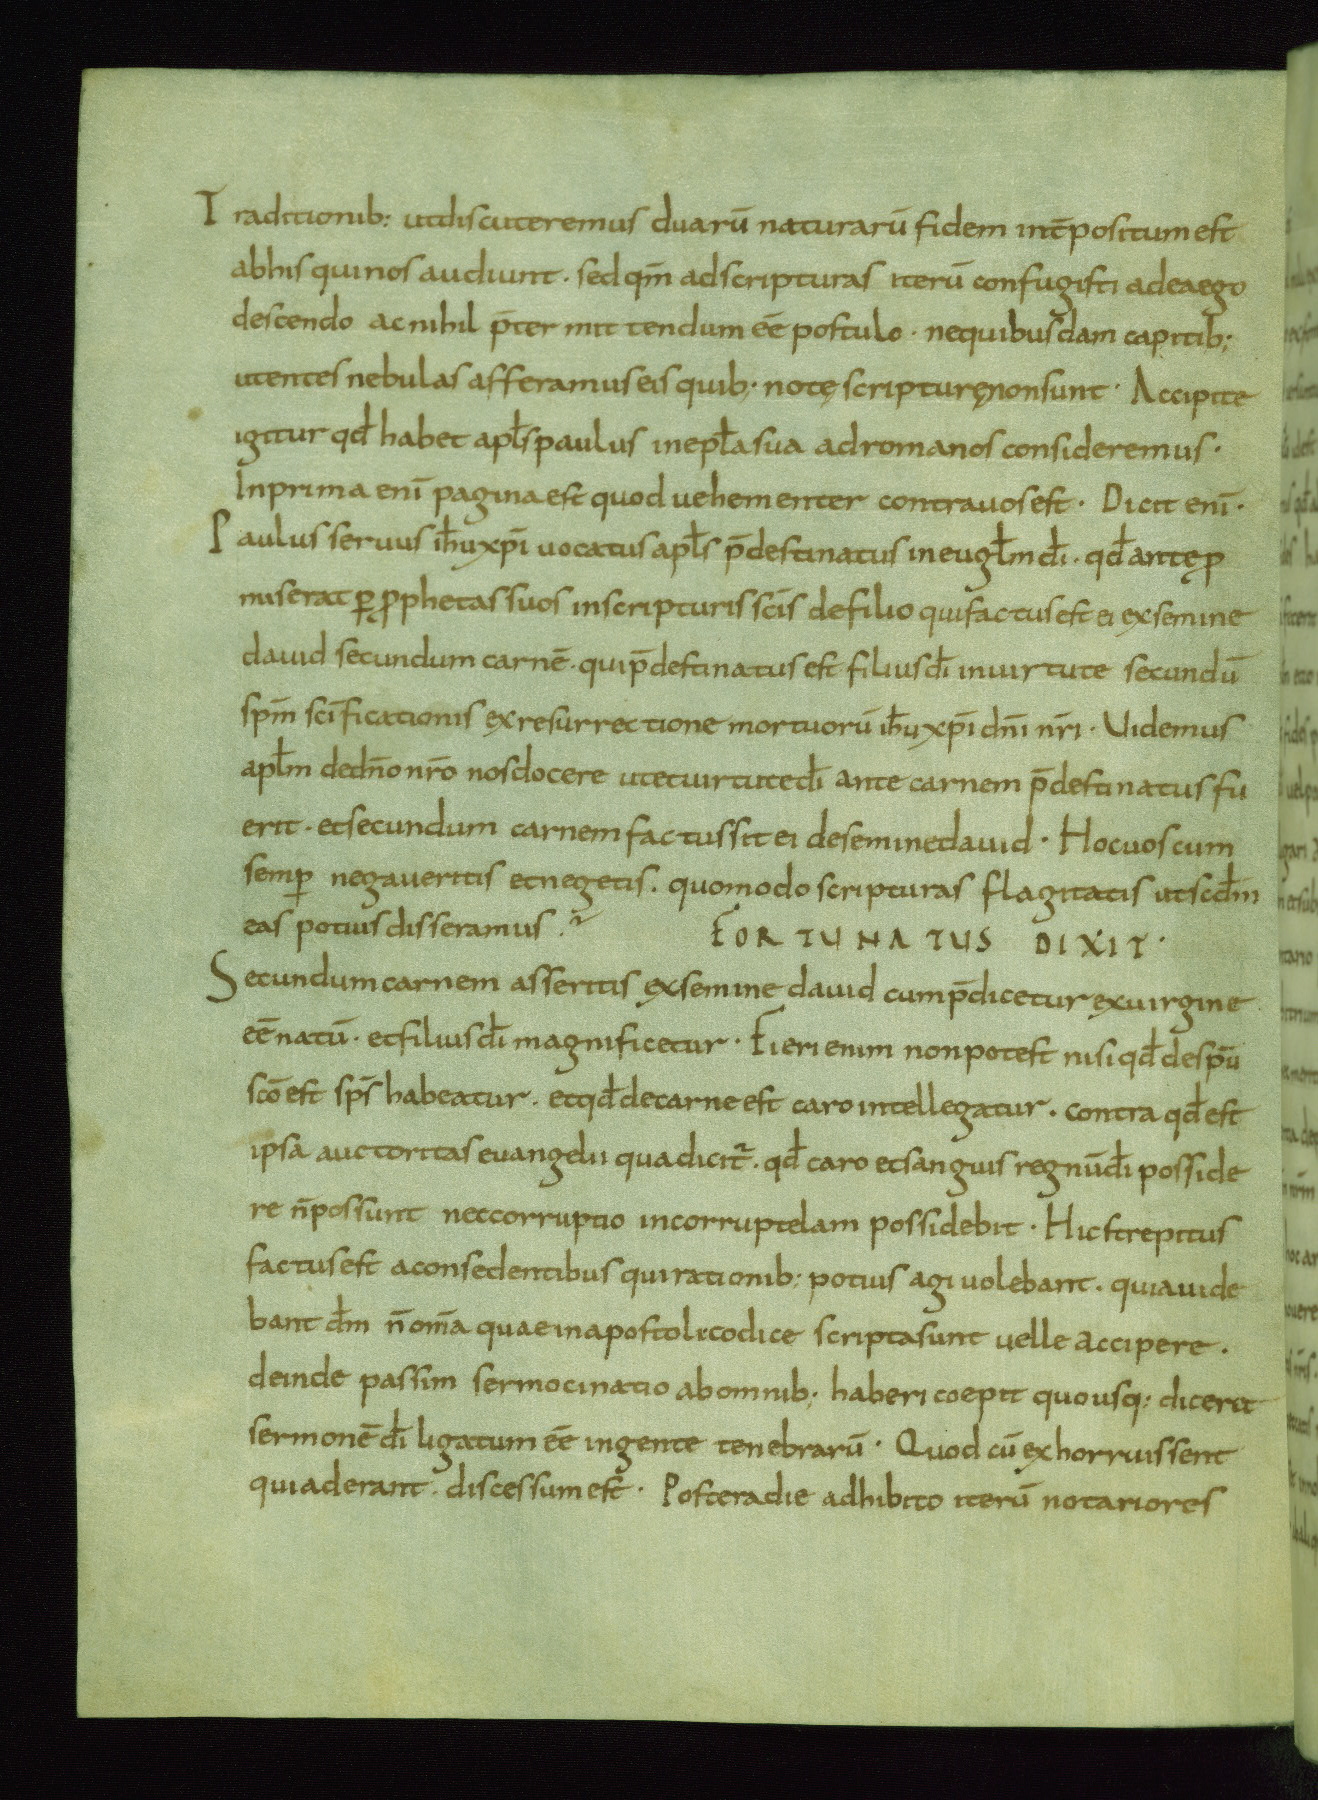 Traditionib; utdiscuteremus duarū naturarū fidem intēpositum est
abhis quinos audiunt · sed qm̄ adscripturas iterū confugisti adeaego
descendo ac nihil p̄ter mittendum eē postulo · nequibusdam capitib;
utentes nebulas afferamus eis quib; notę scripturęnonsunt · Accipite
igitur qđ habet apƚs paulus inepƚa sua adromanos consideremus ·
Inprima enī pagina est quod uehementer contrauos est · Dicit enī ·
Paulus seruus ihūxpī uocatus apƚs p̄destinatus ineugƚm dī · qđ anteꝓ
miserat ꝑ ꝓphetas suos inscripturis scīs defilio quifactus est ei exsemine
dauid secundum carnē · quip̄destinatus est filius dī inuirtute secundū
spm̄ scīficationis exresurrectione mortuorū ihūxpī dnī nrī · Uidemus
apƚm dedn̄o nr̄o nosdocere utetuirtutedī ante carnem p̄destinatus fu
erit · etsecundum carnem factussit ei desemine dauid · Hocuoscum
semꝑ negaueritis etnegetis · quomodo scripturas flagitatis utscđm
eas potius disseramus ·
FORTUNATUS DIXIT ·
Secundumcarnem asseritis exsemine dauid cump̄dicetur exuirgine
eēnatū · etfilius dī magnificetur · Fieri enim nonpotest nisi qđ despū
scō est sps̄ habeatur · etqđ decarne est caro intellegatur · contra qđ est
ipsa auctoritas euangelii quadicit᷑ · qđ caro etsanguis regnūdī posside
re n̄possunt neccorruptio incorruptelam possidebit · Hicstrepitus
factusest aconsedentibus quirationib; potius agi uolebant · quiauide
bant eūm n̄ om̄a quae inapostoli codice scripta sunt uelle accipere ·
deinde passim sermocinatio abomnib; haberi coepit quousq; dicerit
sermonē dī ligatum eē ingente tenebrarū · Quod cū exhorruissent
quiaderant · discessum est · Posteradie adhibito iterū notariores